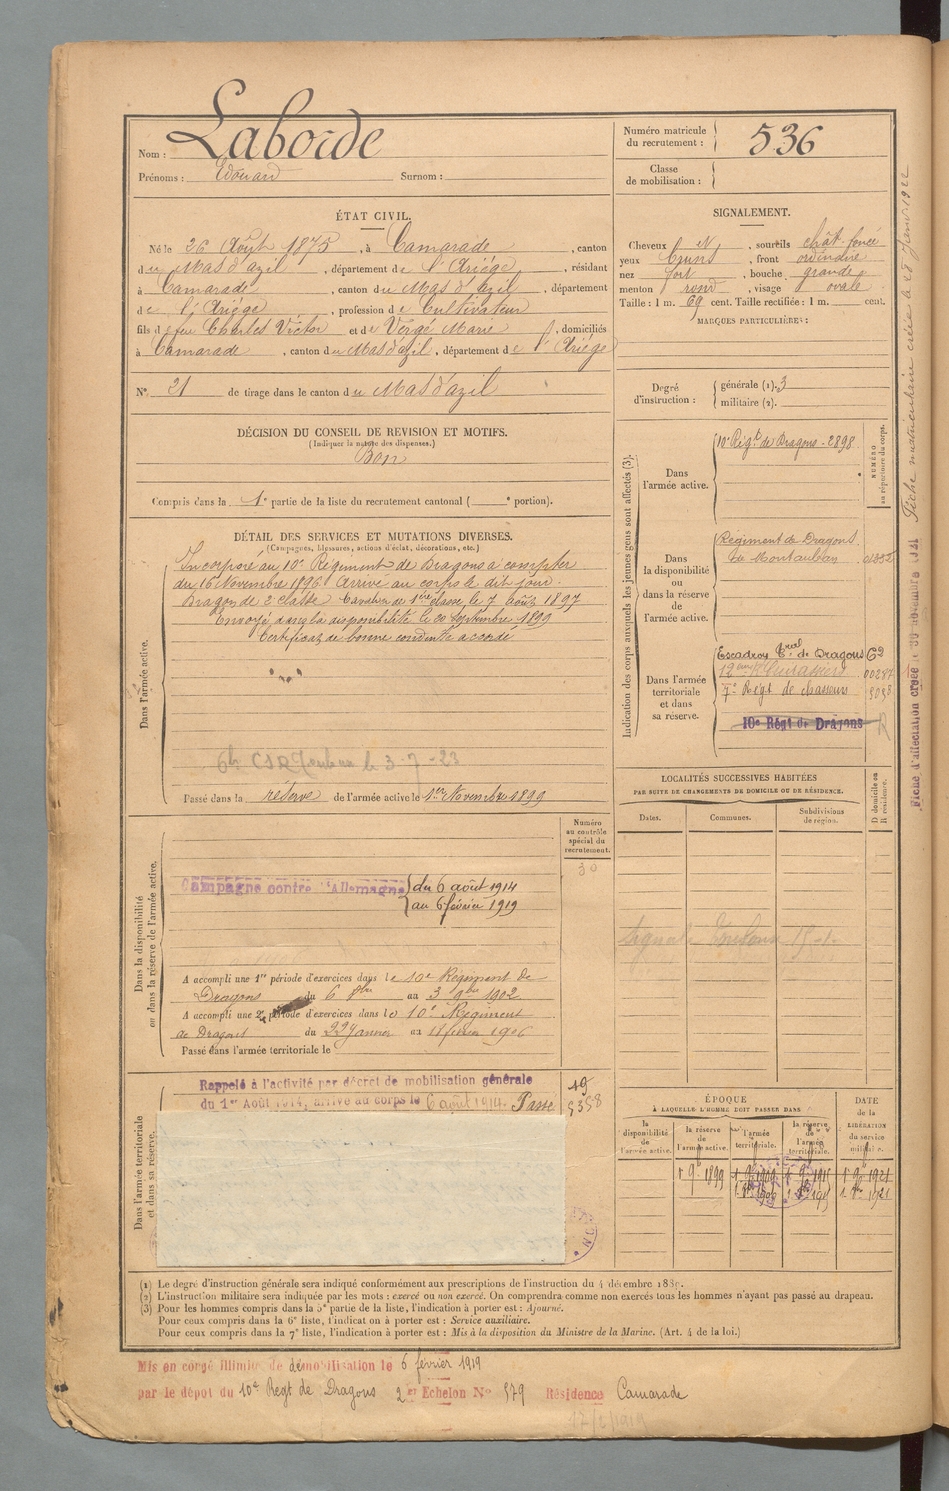 Laborde
Nom :
Prénoms : Edouard Surnom :
Numéro matricule du recrutement : 536
Classe de mobilisation :
ÉTAT CIVIL.
Né le 26 Août 1875, à Camarade, canton
du Mas d'azil, département de l'Ariège, résidant
à Camarade, canton du Mas d'azil, département
de l'Ariège, profession de Cultivateur
fils de feu Charles Victor et de Vergé Marie, domiciliés
à Camarade, canton du Mas d'azil, département de l'Ariège
N° 21 de tirage dans le canton du Mas d'azil
SIGNALEMENT.
Cheveux N, sourcils chât. foncé
yeux bruns, front ordinaire
nez fort, bouche grande
menton rond, visage ovale
Taille : 1 m. 69 cent. Taille rectifiée : 1 m. cent.
MARQUES PARTICULIÈRES :
Degré d'instruction : générale (1). 3
militaire (2).
DÉCISION DU CONSEIL DE REVISION ET MOTIFS.
(Indiquer la nature des dispenses.)
Bon
Compris dans la 1e partie de la liste du recrutement cantonal ( e portion).
DÉTAIL DES SERVICES ET MUTATIONS DIVERSES.
(Campagnes, blessures, actions d'éclat, décorations, etc.)
Dans l'armée active.
Incorporé au 10e Régiment de Dragons à compter
du 16 Novembre 1896 Arrivé au corps le dit jour.
Dragon de 2e classe Cavalier de 1ère classe le 7 août 1897
Envoyé dans la disponibilité le 20 Septembre 1899
Certificat de bonne conduite accordé
le 3-7-23
Passé dans la réserve de l'armée active le 1er Novembre 1899
Indication des corps auxquels les jeunes gens sont affectés (3).
NUMÉRO au répertoire du corps.
Dans l'armée active.
10e Régt de Dragons - 2898
Dans la disponibilité ou dans la réserve de l'armée active.
Régiment de Dragons
de Montauban
Dans l'armée territoriale et dans sa réserve.
Escadron Tral de Dragons 69
Cuirassiers 00287
7e Régt de chasseurs
10e Régt de Dragons
R
Fiche matriculaire créée le 28 Janv. 1922
Fiche d'affectation créée le 30 novembre 1921
LOCALITÉS SUCCESSIVES HABITÉES
PAR SUITE DE CHANGEMENTS DE DOMICILE OU DE RÉSIDENCE.
Dates. Communes. Subdivisions de région.
D domicile ou R résidence.
Dans la disponibilité ou dans la réserve de l'armée active.
Numéro au contrôle spécial du recrutement.
30
Campagne contre l'Allemagne du 6 août 1914
au 6 février 1919
A accompli une 1re période d'exercices dans le 10e Régiment de
Dragons du 6 8bre au 3 9bre 1902
A accompli une 2e période d'exercices dans le 10e Régiment
de Dragons du 22 Janvier au 18 février 1906
Passé dans l'armée territoriale le
Dans l'armée territoriale et dans sa réserve.
Rappelé à l'activité par décret de mobilisation générale
du 1er Août 1914, arrivé au corps le 6 août 1914. Passé
19
5358
ÉPOQUE
À LAQUELLE L'HOMME DOIT PASSER DANS
la disponibilité de l'armée active.
la réserve de l'armée active.
l'armée territoriale.
la réserve de l'armée territoriale.
DATE de la LIBÉRATION du service militaire.
1 9e 1899 1 9e 1909 1 9e 1915 1 9e 1921
(1) Le degré d'instruction générale sera indiqué conformément aux prescriptions de l'instruction du 4 décembre
(2) L'instruction militaire sera indiquée par les mots : exercé ou non exercé. On comprendra comme non exercés tous les hommes n'ayant pas passé au drapeau.
(3) Pour les hommes compris dans la 5e partie de la liste, l'indication à porter est : Ajourné.
Pour ceux compris dans la 6e liste, l'indication à porter est : Service auxiliaire.
Pour ceux compris dans la 7e liste, l'indication à porter est : Mis à la disposition du Ministre de la Marine. (Art. 4 de la loi.)
Mis en congé illimité de démobilisation le 6 février 1919
par le dépôt du 10e Regt de Dragons 2e Echelon N° 579 Résidence Camarade